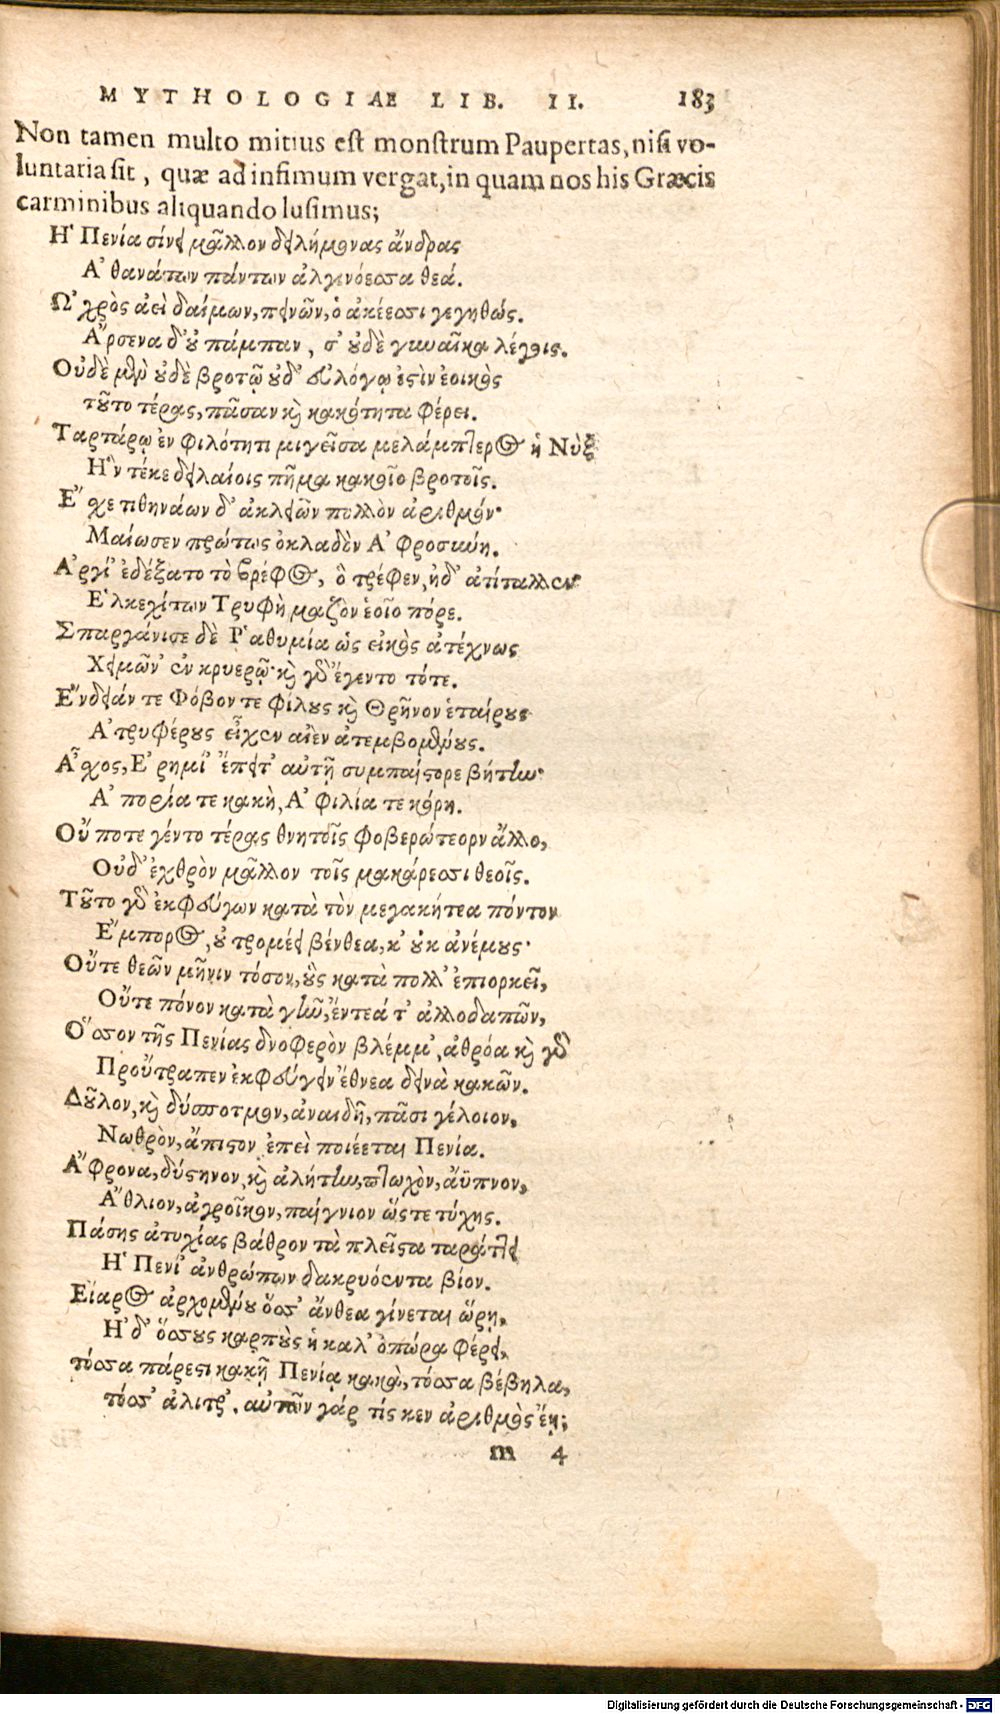 MYTHOLOGIÆ LIB. II. 183
Non tamen multo mitius est monstrum Paupertas, nisi vo-
luntaria sit, quæ ad infimum vergat, in quam nos his Græcis
carminibus aliquando lusimus;
Ἡ Πενία σίνει μᾶλλον δειλήμονας ἄνδρας
Ἀθανάτων πάντων ἀλγινόεσσα θεά.
Ὠχρὸς ἀεὶ δαίμων, πεινῶν, ὁ ἀκέεσσι γεγηθώς.
Ἄρσενα δ' οὐ πάμπαν, σ' οὐδὲ γυναῖκα λέγεις.
Οὐδὲ μὲν οὐδὲ βροτῷ οὐδ' εὐλόγῳ ἐστὶν ἐοικὸς
τοῦτο τέρας, πᾶσαν καὶ κακότητα φέρει.
Ταρτάρῳ ἐν φιλότητι μιγεῖσα μελάμπτερος ἡ Νὺξ
Ἣν τέκε δειλαίοις πῆμα κακοῖο βροτοῖς.
Ἔσχε τιθηνάων δ' ἀκλειῶν πολλὸν ἀριθμόν·
Μαίωσεν πρώτως ὀκλαδὲν Ἀφροσύνη.
Ἀργί' ἐδέξατο τὸ βρέφος, ὃ τρέφεν, ἠδ' ἀτίταλλεν
Ἑλκεχίτων Τρυφὴ μαζὸν ἑοῖο πόρε.
Σπαργάνισε δὲ Ῥαθυμία ὡς εἰκὸς ἀτέχνως
Χειμῶν' ἐν κρυερῷ· καὶ γὰρ ἔγεντο τότε.
Ἔνδειάν τε Φόβον τε φίλους καὶ Θρῆνον ἑταίρους
Ἀτρυφέρους εἶχεν αἰὲν ἀτεμβομένους.
Ἄχος, Ἐρημί' ἔπειτ' αὐτῇ συμπαίστορε βήτην·
Ἀπορία τε κακὴ, Ἀφιλία τε κόρη.
Οὔποτε γέντο τέρας θνητοῖς φοβερώτεορν ἄλλο,
Οὐδ' ἐχθρὸν μᾶλλον τοῖς μακάρεσσι θεοῖς.
Τοῦτο γὰρ ἐκφεύγων κατὰ τὸν μεγακήτεα πόντον
Ἔμπορος, οὐ τρομέει βένθεα, κ' οὐκ ἀνέμους·
Οὔτε θεῶν μῆνιν τόσον, οὓς κατὰ πολλ' ἐπιορκεῖ,
Οὔτε πόνον κατὰ γῆν, ἔντεά τ' ἀλλοδαπῶν,
Ὅσσον τῆς Πενίας δνοφερὸν βλέμμ', ἀθρόα καὶ γὰρ
Προὔτραπεν ἐκφεύγειν ἔθνεα δεινὰ κακῶν.
Δοῦλον, καὶ δύσποτμον, ἀναιδῆ, πᾶσι γέλοιον,
Νωθρὸν, ἄπιστον ἐπεὶ ποιέεται Πενία.
Ἄφρονα, δύστηνον, καὶ ἀλήτην, πτωχὸν, ἄϋπνον,
Ἄθλιον, ἀγροῖκον, παίγνιον ὥστε τύχης.
Πάσης ἀτυχίας βάθρον τὰ πλεῖστα ταράττει
Ἡ Πενί' ἀνθρώπων δακρυόεντα βίον.
Εἴαρος ἀρχομένου ὅσσ' ἄνθεα γίνεται ὥρῃ,
Ἠδ' ὅσσους καρποὺς ἡ καλ' ὀπώρα φέρει,
τόσσα πάρεστι κακῇ Πενίᾳ κακὰ, τόσσα βέβηλα,
τόσσ' ἀλιτρ', αὐτῶν γάρ τίς κεν ἀριθμὸς ἔῃ;
m 4
Digitalisierung gefördert durch die Deutsche Forschungsgemeinschaft - DFG